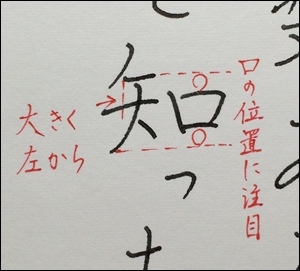 口の位置に注目
知っ
大きく
左から